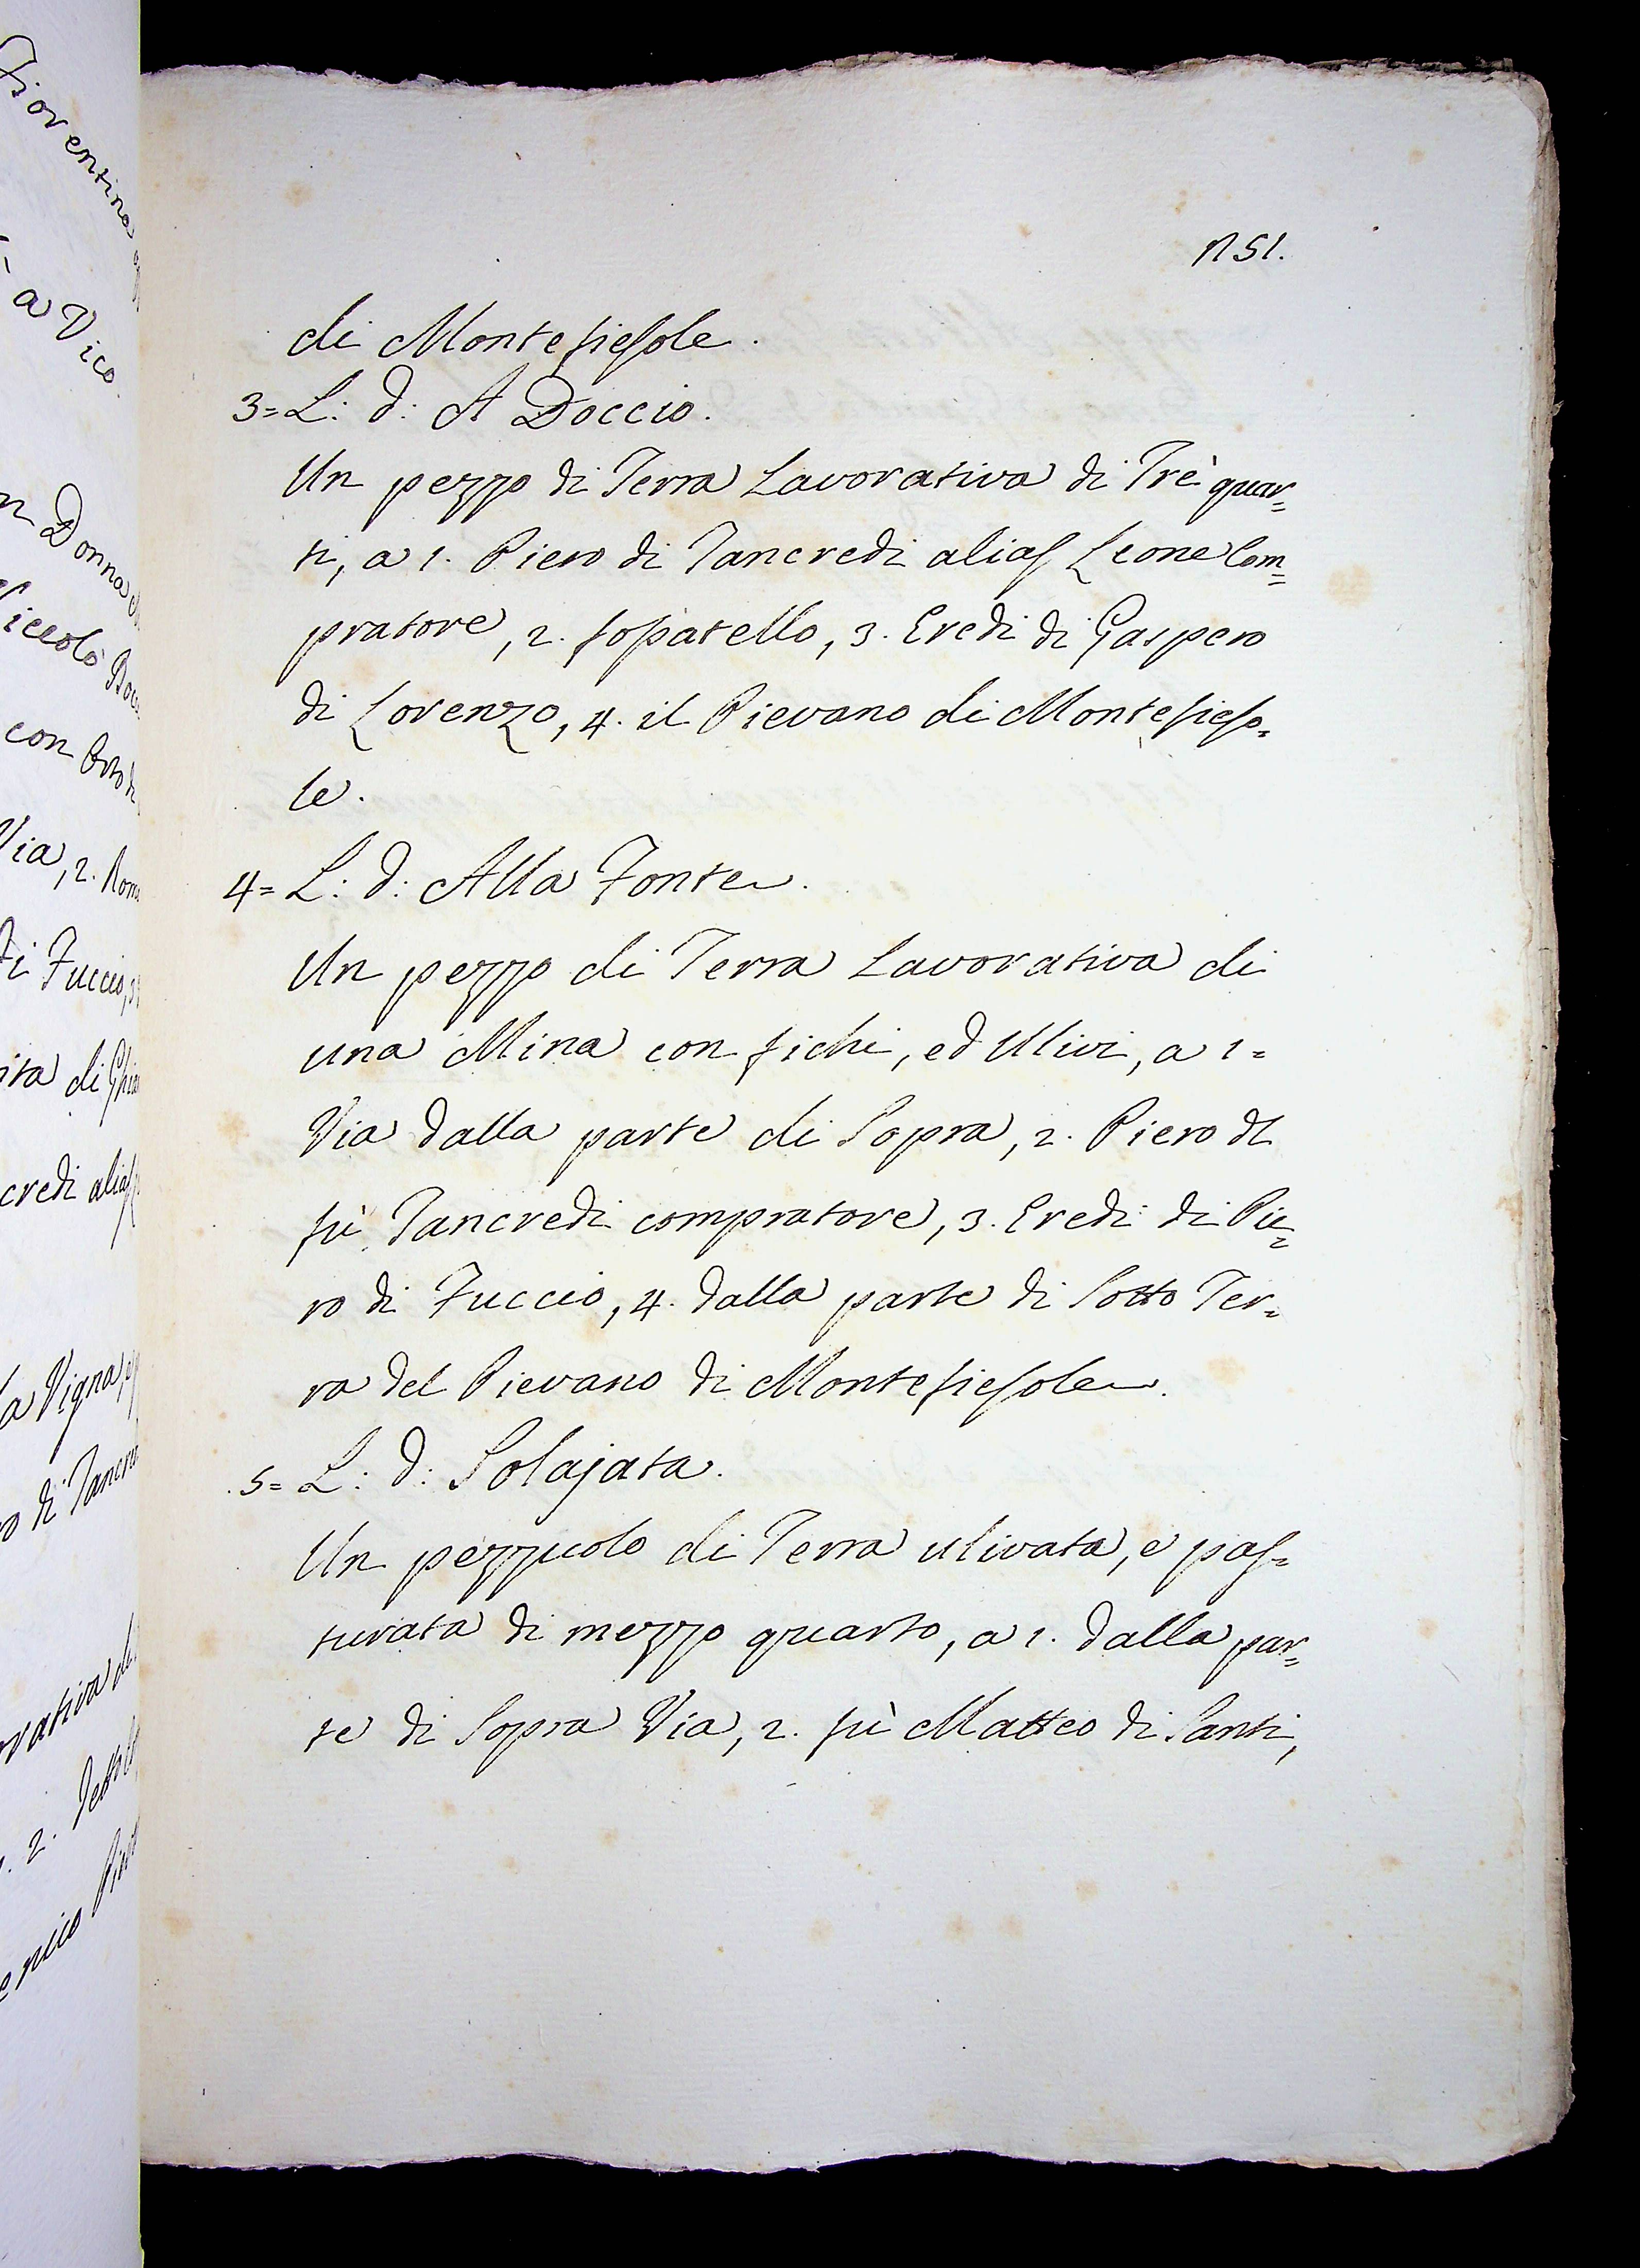 Fiorentina
a Vico.
n Donna
iccolò
con
Via, 2.
di Fuccio, 3
di
credi alias
la Vigna,
o di Tancre
rativa di
2.
enico
n 51.
di Montefiesole.
3= L: d: A Doccio.
Un pezzo di Terra Lavorativa di Trè quar=
ti, a 1. Piero di Tancredi alias Leone Com=
pratore, 2. fossatello, 3. Eredi di Gaspero
di Lorenzo, 4. il Pievano di Montefieso=
le.
4= L: d: Alla Fonte.
Un pezzo di Terra Lavorativa di
una Mina con fichi, ed Ulivi, a 1=
Via dalla parte di Sopra, 2. Piero di
fù Tancredi compratore, 3. Eredi di Pie=
ro di Fuccio, 4. dalla parte di Sotto Ter=
ra del Pievano di Montefiesole.
5= L: d: Solajata.
Un pezzuolo di Terra ulivata, e pas=
turata di mezzo quarto, a 1. dalla par=
te di Sopra Via, 2. fù Matteo di Santi,